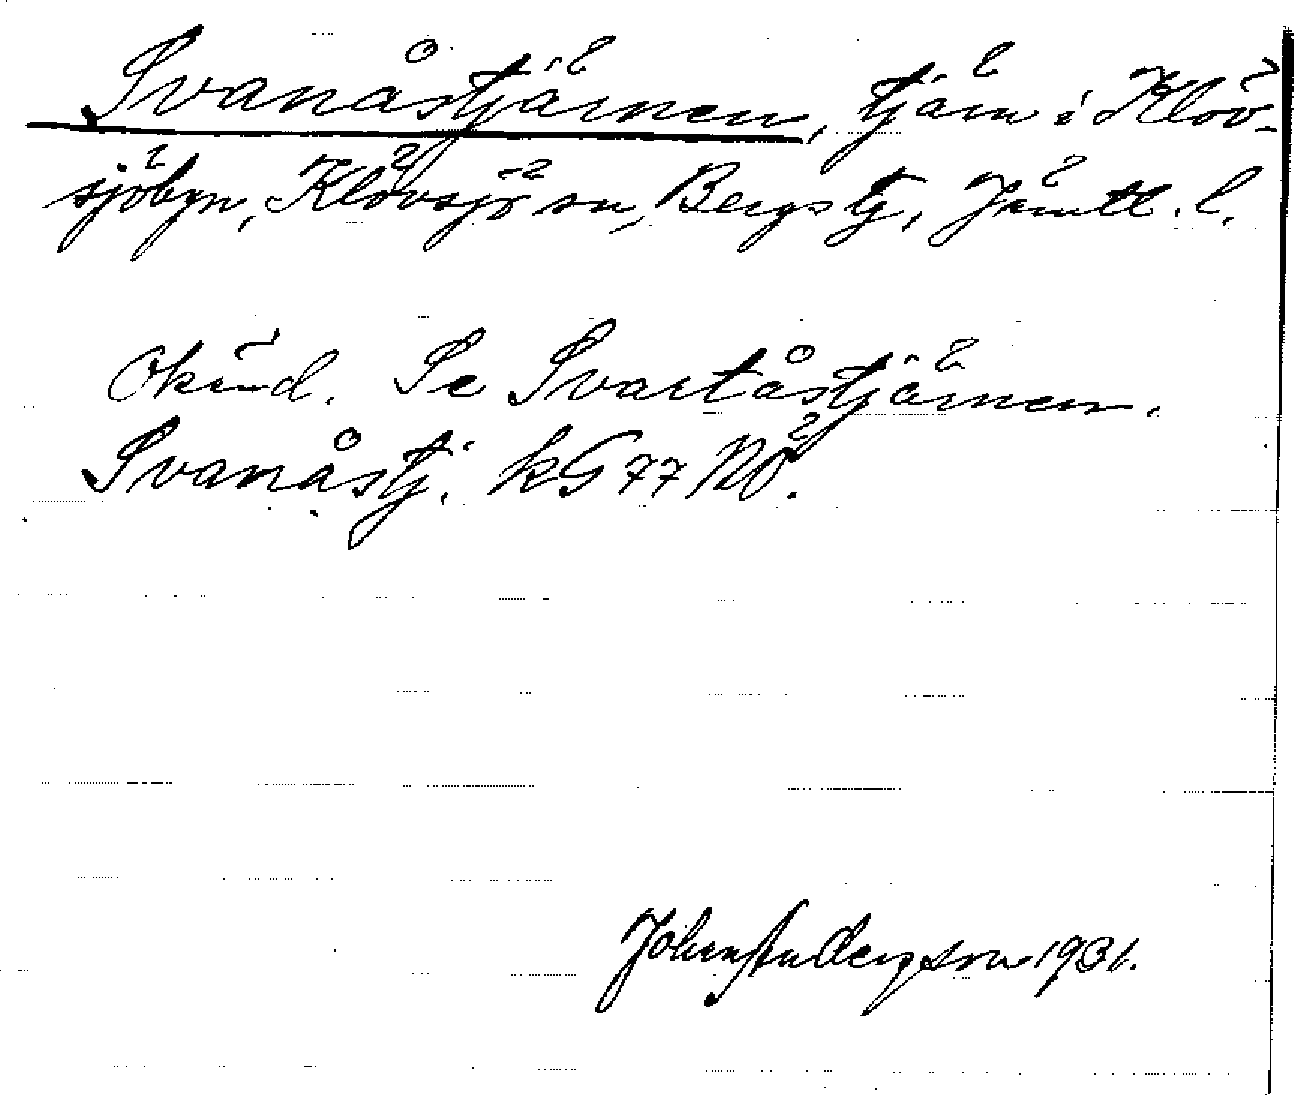 Svanåstjärnen, tjärn i Klöv-
sjöbyn, Klövsjö sn, Bergs tg, Jämtl. l.
Okänd. Se Svartåstjärnen.
Svanåstj. kG 77 NÖ.
Johan Anderson 1931.